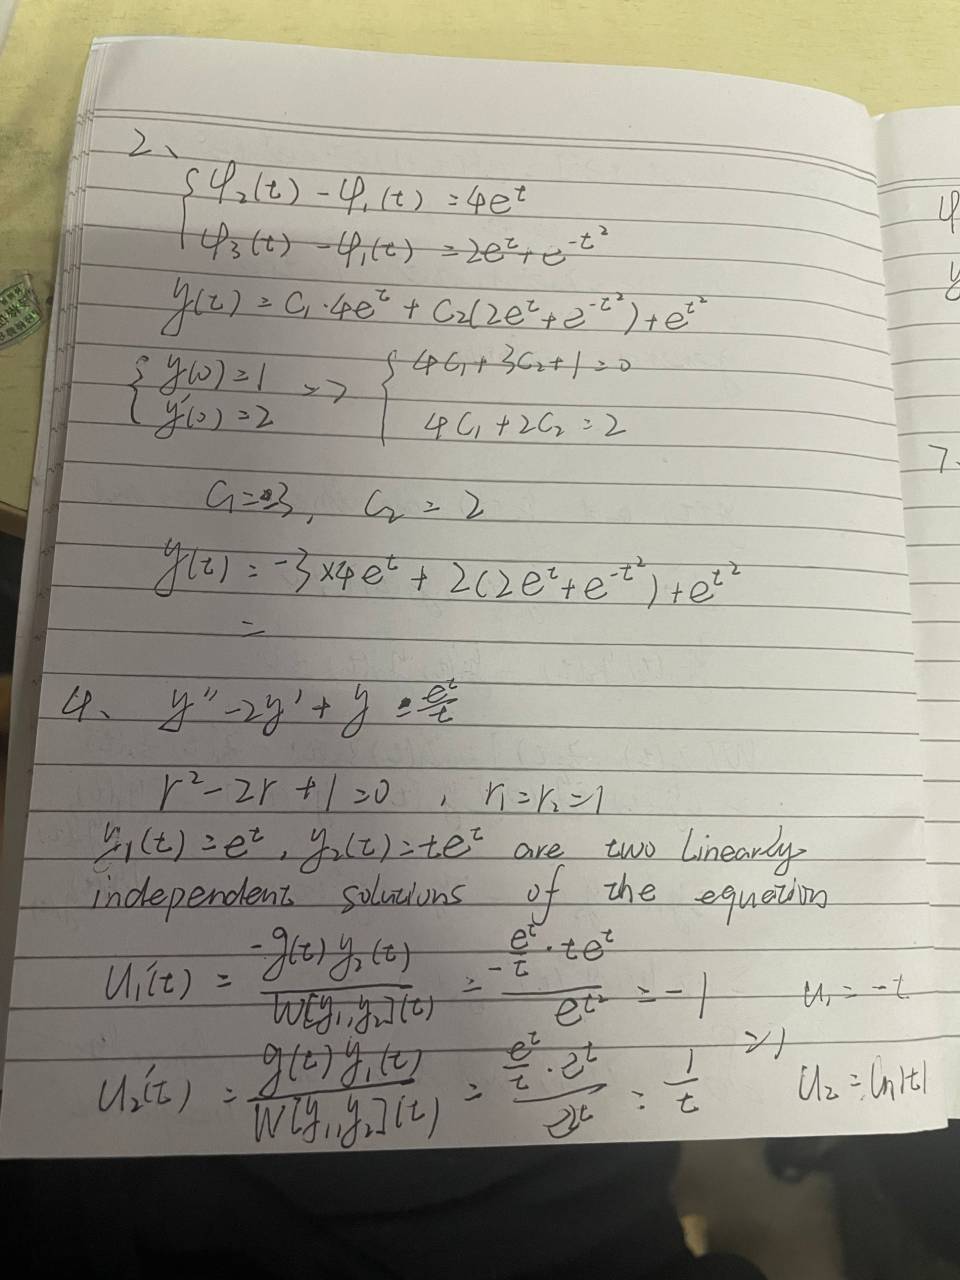 2、
φ₂(t) - φ₁(t) = 4e^t
φ₃(t) - φ₁(t) = 2e^t + e^{-t²}
y(t) = C₁·4e^t + C₂(2e^t + e^{-t²}) + e^{t²}
{ y(0) = 1 => { 4C₁ + 3C₂ + 1 = 0
y'(0) = 2 4C₁ + 2C₂ = 2
C₁ = -3, C₂ = 2
y(t) = -3×4e^t + 2(2e^t + e^{-t²}) + e^{t²}
=
4、 y'' - 2y' + y = e^t/t
r² - 2r + 1 = 0 , r₁ = r₂ = 1
y₁(t) = e^t, y₂(t) = te^t are two linearly
independent solutions of the equation
u₁'(t) = -g(t)y₂(t) / W[y₁,y₂](t) = -e^t/t · te^t / e^{t²} = -1 u₁ = -t
=>
u₂'(t) = g(t)y₁(t) / W[y₁,y₂](t) = e^t/t · e^t / e^{2t} = 1/t u₂ = ln|t|
φ
y
7、